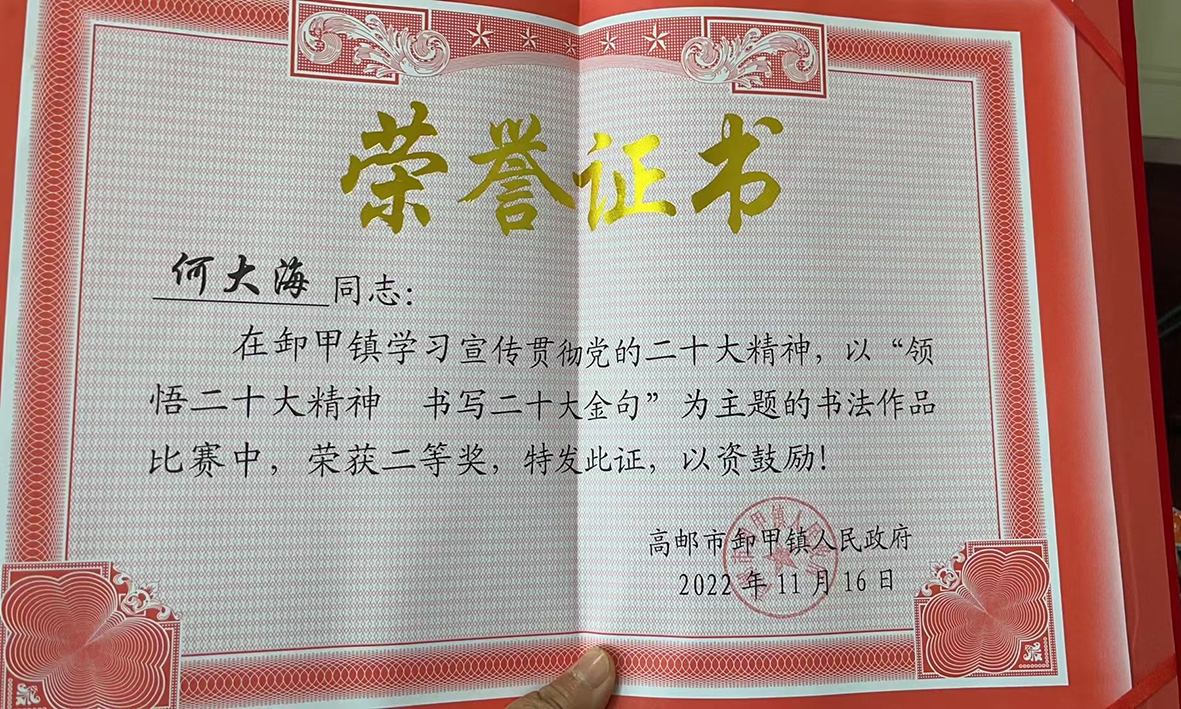 荣誉证书
何大海同志：
在卸甲镇学习宣传贯彻党的二十大精神，以“领
悟二十大精神　书写二十大金句”为主题的书法作品
比赛中，荣获二等奖，特发此证，以资鼓励！
高邮市卸甲镇人民政府
2022年11月16日